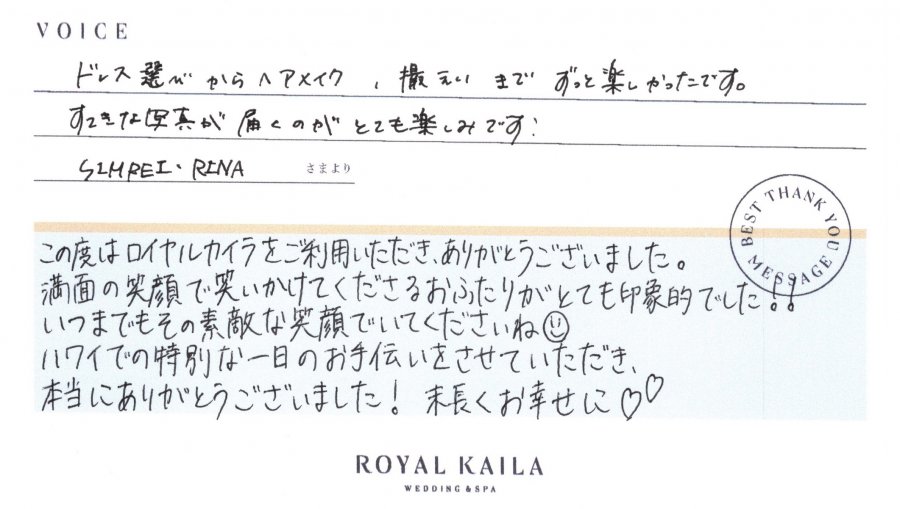 VOICE
ドレス選びからヘアメイク、撮えいまでずっと楽しかったです。
すてきな写真が届くのがとても楽しみです!
SIMPEI・RINA さまより
BEST THANK YOU MESSAGE
この度はロイヤルカイラをご利用いただき、ありがとうございました。
満面の笑顔で笑いかけてくださるおふたりがとても印象的でした!!
いつまでもその素敵な笑顔でいてくださいね☺
ハワイでの特別な一日のお手伝いをさせていただき、
本当にありがとうございました! 末長くお幸せに♡♡
ROYAL KAILA
WEDDING & SPA